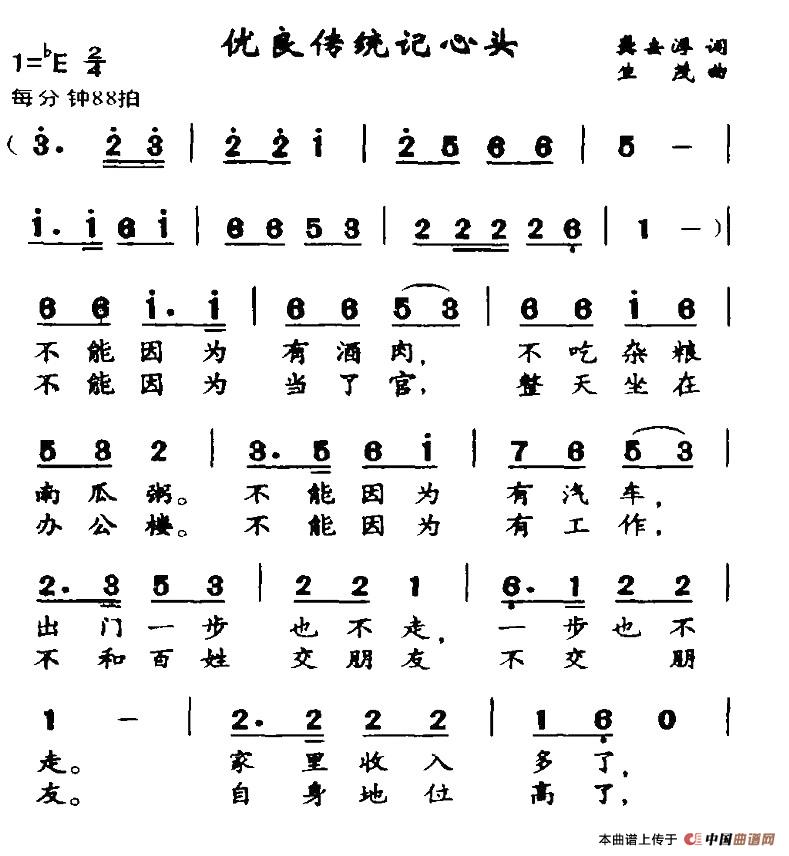 优良传统记心头
1=♭E 2/4
龚岳淳 词
生茂 曲
每分钟88拍
(3̇. 2̇ 3̇ | 2̇ 2̇ 1̇ | 2̇ 5 6 6 | 5 － |
1̇. 1̇ 6 1̇ | 6 6 5 3 | 2 2 2 2 6̣ | 1 －)|
6 6 1̇. 1̇ | 6 6 5 3 | 6 6 1̇ 6 |
不能因为 有酒肉, 不吃杂粮
不能因为 当了官, 整天坐在
5 3 2 | 3. 5 6 1̇ | 7 6 5 3 |
南瓜粥。 不能因为 有汽车,
办公楼。 不能因为 有工作,
2. 3 5 3 | 2 2 1 | 6̣. 1 2 2 |
出门一步 也不走, 一步也不
不和百姓 交朋友, 不交朋
1 － | 2. 2 2 2 | 1 6̣ 0 |
走。 家里收入 多了,
友。 自身地位 高了,
本曲谱上传于 中国曲谱网